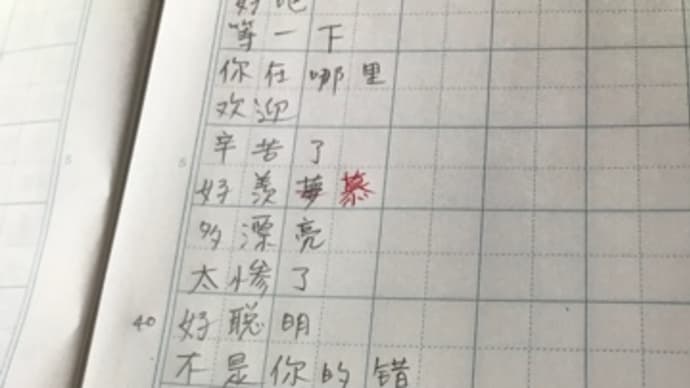 好吧
等一下
你在哪里
欢迎
辛苦了
好羡慕
多漂亮
太惨了
40 好聪明
不是你的错
5
5